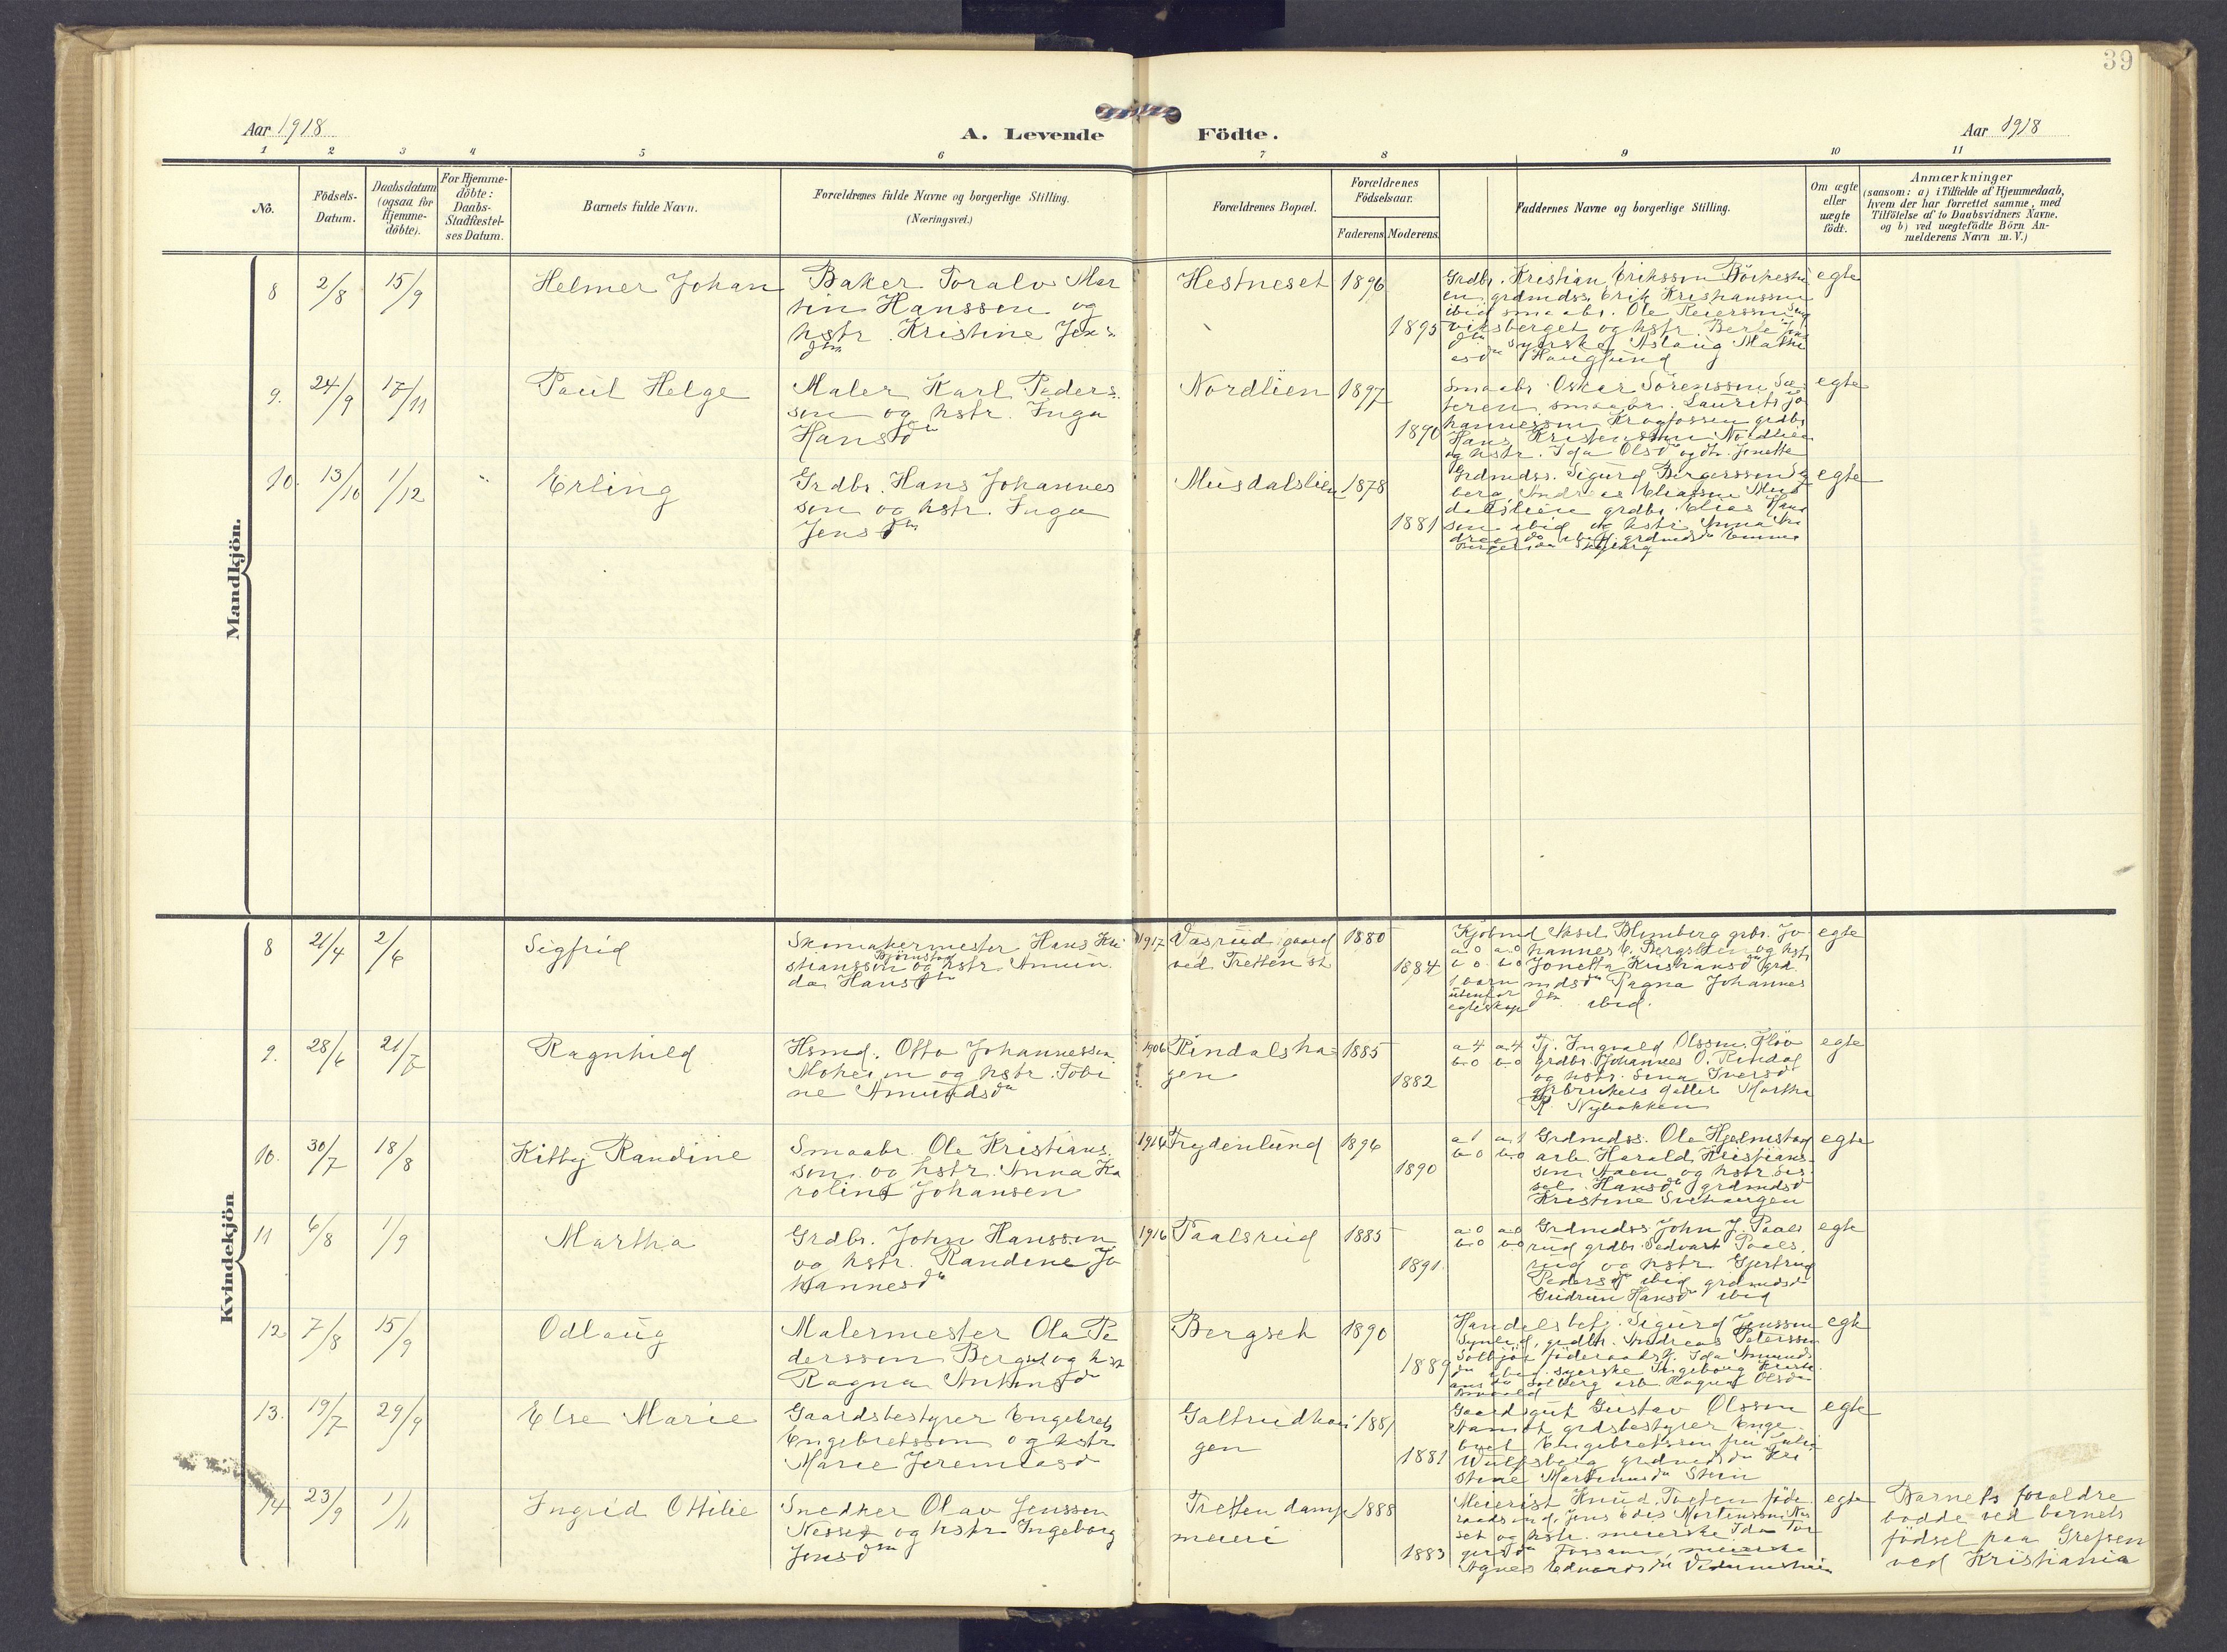 39
Aar 1918
A. Levende Födte.
Aar 1918
1 2 3 4 5 6 7 8 9 10 11
No.
Födsels-
Datum.
Daabsdatum
(ogsaa for
Hjemme-
döbte).
For Hjemme-
döbte:
Daabs-
Stadfæstel-
ses Datum.
Barnets fulde Navn.
Forældrenes fulde Navne og borgerlige Stilling.
(Næringsvei.)
Forældrenes Bopæl.
Forældrenes
Födselsaar.
Faderens Moderens
Faddernes Navne og borgerlige Stilling.
Om ægte
eller
uægte
födt.
Anmærkninger
(saasom: a) i Tilfælde af Hjemmedaab,
hvem der har forrettet samme, med
Tilföielse af to Daabsvidners Navne,
og b) ved uægtefödte Börn An-
melderens Navn m. V.)
Mandkjön.
8
2/8
15/9
Helmer Johan
Baker Toralv Mar
tin Hanssen og
hstr. Kristine Jens
dtr
Hestneset
1896
1895
Grdbr. Kristian Eriksson
en grdmdss. Erik Kristianssen
ibid smaabr. Ole Reierssen
viksberget og hstr. Berte
syerske Aslaug
Hauglund
egte
9.
24/9
17/11
Paul Helge
Maler Karl Peders-
sen og hstr. Inga
Hansdtr
Nordlien
1897
1890
Smaabr. Oskar Sörenssen Sæ-
teren, smaabr. Laurits Jo
hannessen Krogfossen grdbr
Hans Kristenssen Nordlien
og hstr. Ida Olsdtr og dtr. Jonette
egte
10.
13/10
1/12
Erling
Grdbr. Hans Johannes
sen og hstr. Inga
Jensdtr
Musdalslien
1878
1881
Grdmdss. Sigurd Bergerssen Sy
berg, Andreas Eliassen Mus
dalslien grdbr. Elias Hans
sen ibid og hstr. Anna An
dreasdtr ibid, grdmdsdtr Emma
egte
Kvindekjön
8
21/4
2/6
Sigfrid
Skomakermester Hans Kri
stianssen Björnstad og hstr. Amun
da Hansdtr
1917
Vasrud gaard
ved Tretten st
1880
1884
a 0 a 0
b 0 b 0
1 barn
utenfor
egteskap
Kjöbmd Aksel Blomberg grbr. Jo
hannes E. Bergsten og hstr
Jonetta Kristiansdtr grd
mdsdtr Ragna Johannes
dtr ibid.
egte
9.
28/6
21/7
Ragnhild
Hsmd. Otto Johannessen
Moheim og hstr. Tobi
ne Amundsdtr
1906
Rindalsha-
gen
1885
1882
a 4 a 4
b 0 b 0
Tj. Ingvald Olssen Flöv
grdbr. Johannes O. Rindal
og hstr. Sina Iversdtr
grbrukers datter Martha
R. Nybakken
egte
10.
30/7
18/8
Kitty Randine
Smaabr. Ole Kristians-
sen og hstr. Anna Ka
roline Johansen
1914
Frydenlund
1896
1890
a 1 a 1
b 0 b 0
Grdmdss. Ole Hjelmstad
arb. Harald Kristians-
sen Aaen og hstr. Sis-
sel Hansdtr grdmdsdtr
Kristine Svehaugen
egte
11
6/8
1/9
Martha
Grdbr. John Hanssen
og hstr. Randine Jo
hannesdtr
1916
Paalsrud
1885
1891.
a 0 a 0
b 0 b 0
Grdmdss. John J. Paals
rud grdbr. Sedvart Paals
rud og hstr. Gjertrud
Pedersdtr ibid grdmdsdtr
Gudrun Hansdtr ibid
egte
12
7/8
15/9
Odlaug
Malermester Ola Pe
derssen Bergset og hstr
Ragna Antonsdtr
Bergset
1890
1889
Handelsbetj. Sigurd Jenssen
grdbr. Andreas Peterssen
Solbjör föderaadsk. Ida Amunds
dtr ibid. syerske Ingeborg Kristi
ansdtr Solberg arb. Ragna Olsdtr
egte
13.
19/7
29/9
Else Marie
Gaardsbestyrer Engebret
Engebretssen og hstr
Marie Jeremiasdtr
Galtrudhau-
gen
1881
1881
Gaardsgut Gustav Olssen
Stamöt grdsbestyrer Enge-
bret Engebretssen fru Julie
Wulfsberg grdmdsdtr Kri
stine Martinusdtr Stein
egte
14
23/9
1/11
Ingrid Ottilie
Snedker Olav Jenssen
Nesset og hstr Ingeborg
Jensdtr
Tretten damp
meieri
1888
1883
Meierist Knud Toften föde-
raadsmd. Jens Edis Mortenssen Nes
set og hstr. meierske Ida Tor
gersdtr Fossum, meierske
Agnes Edvardsdtr
egte
Barnets foraldre
bodde ved barnets
födsel paa Grefsen
ved Kristiania